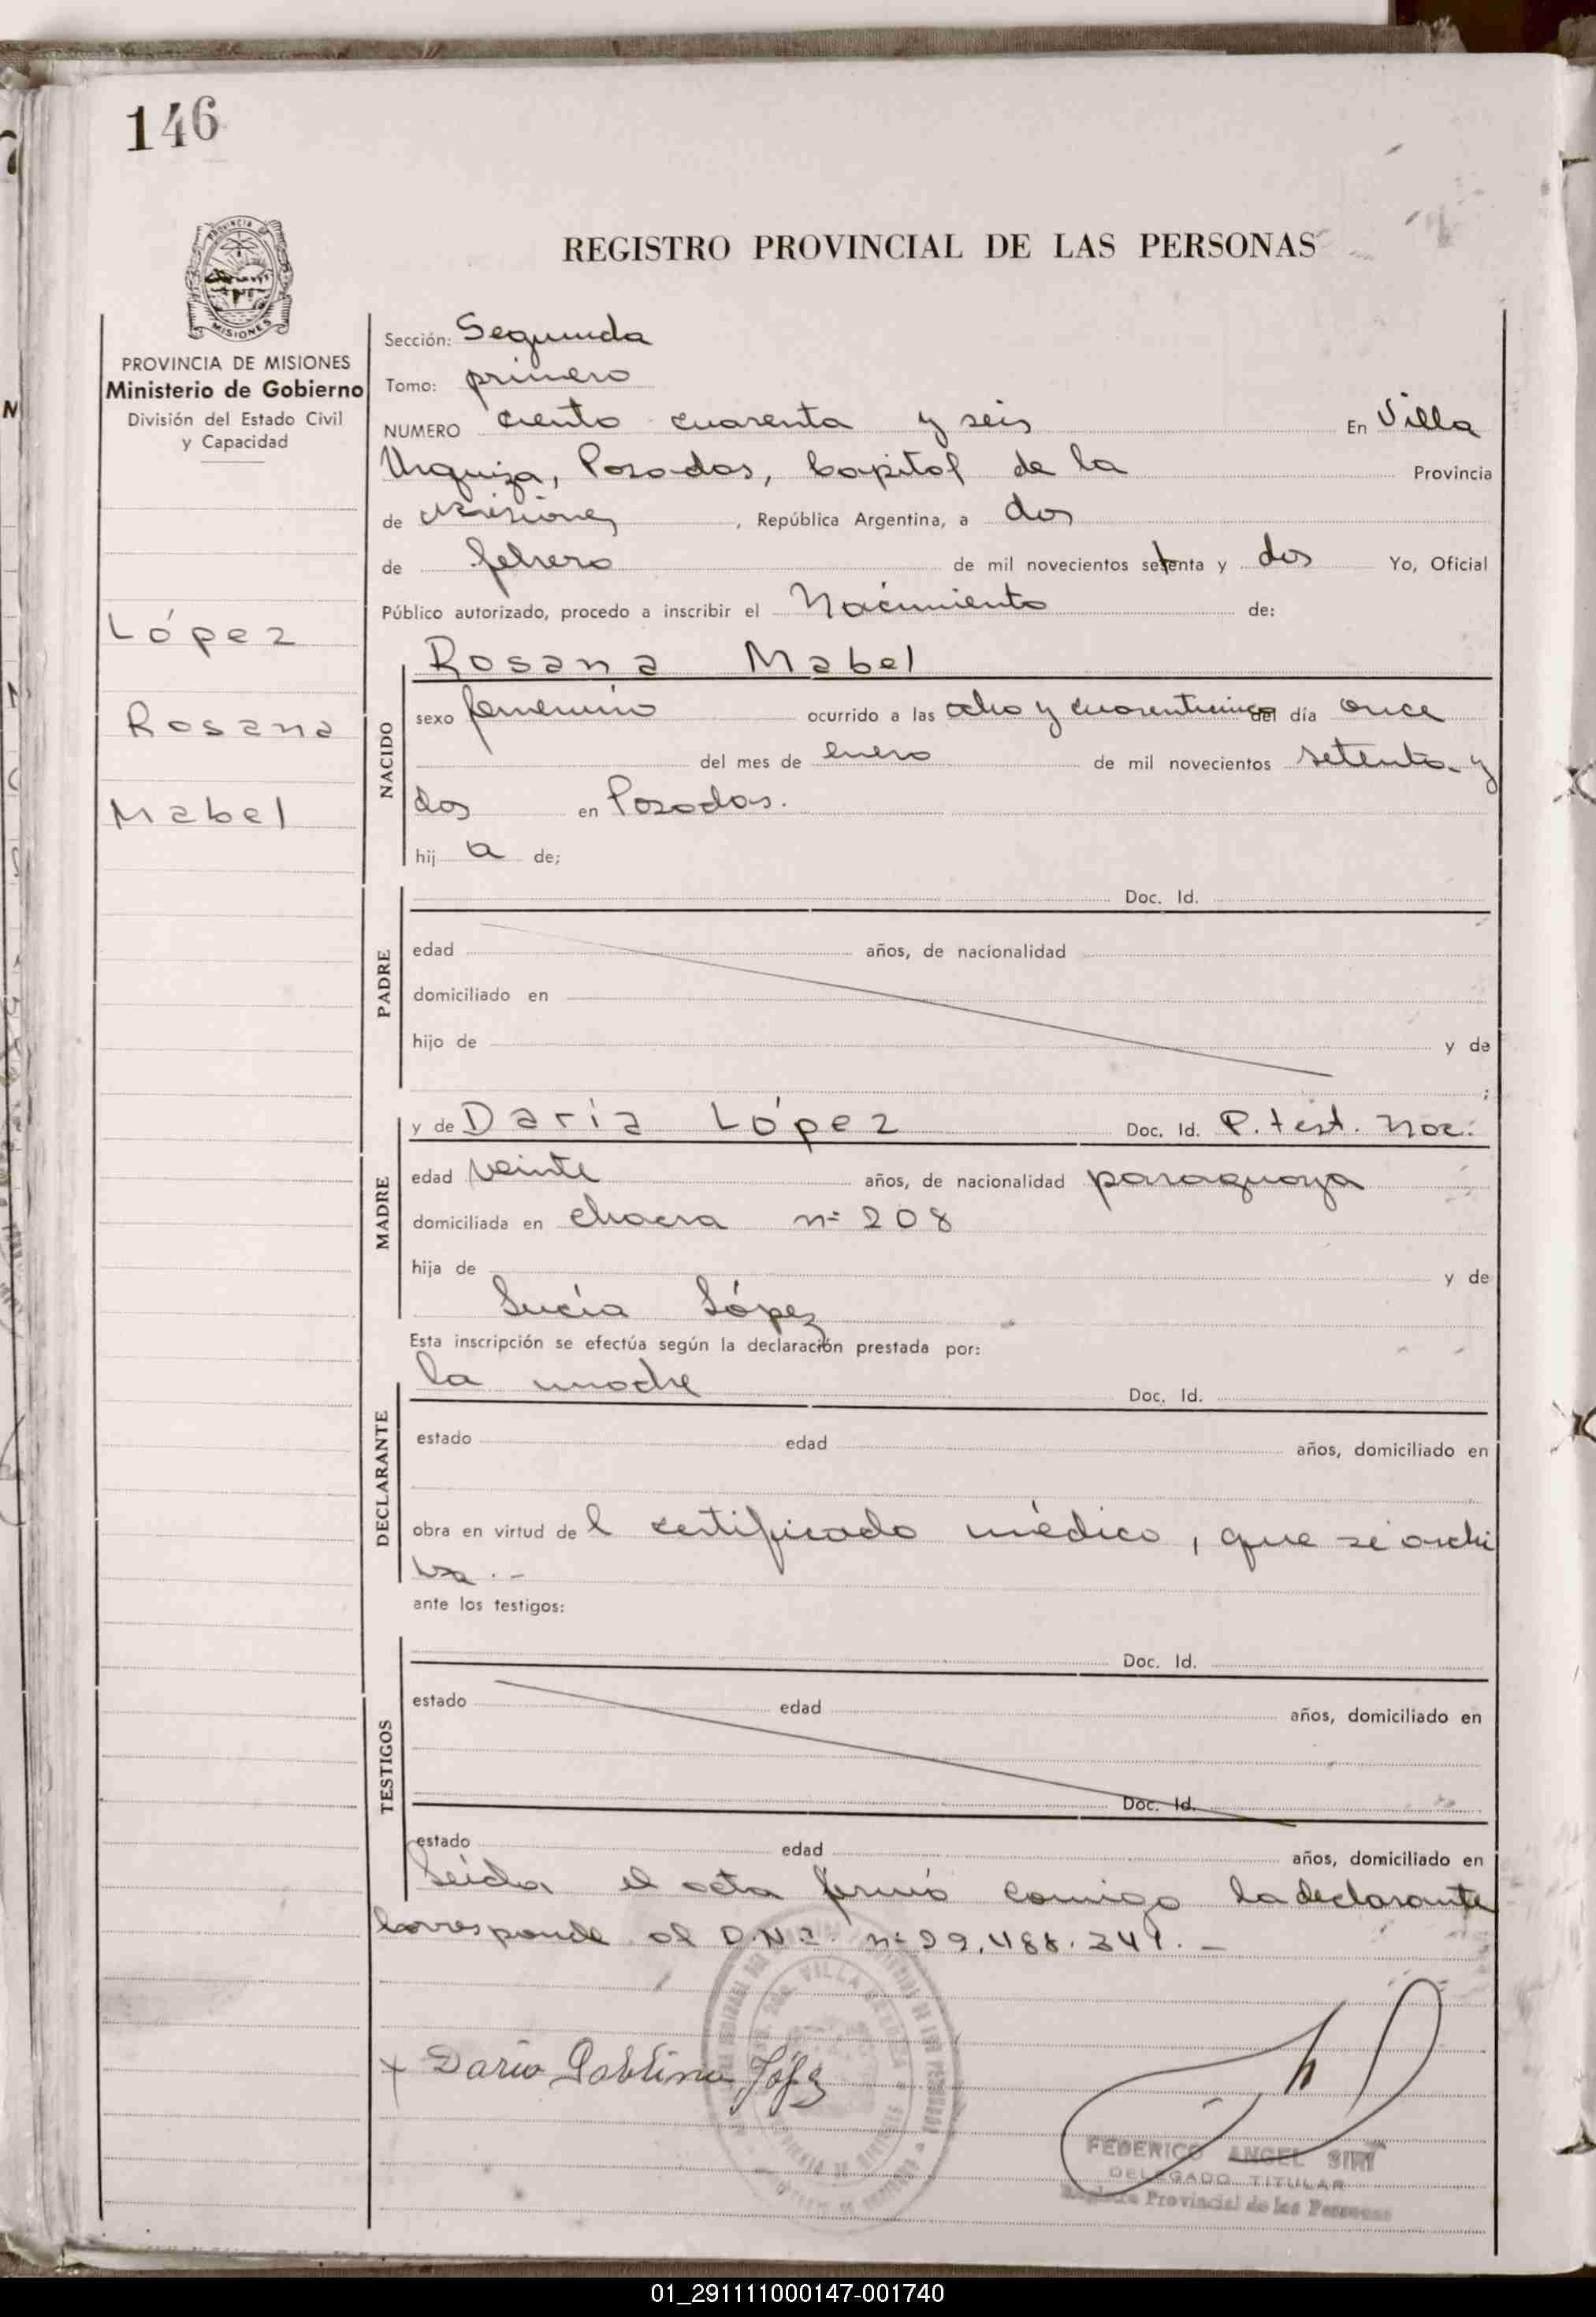 146
PROVINCIA DE
MISIONES
REGISTRO PROVINCIAL DE LAS PERSONAS
PROVINCIA DE MISIONES
Ministerio de Gobierno
División del Estado Civil
y Capacidad
López
Rosana
Mabel
Sección: Segunda
Tomo: primero
NUMERO ciento cuarenta y seis En Villa
Urquiza, Posadas, Capital de la Provincia
de Misiones, República Argentina, a dos
de febrero de mil novecientos setenta y dos Yo, Oficial
Público autorizado, procedo a inscribir el Nacimiento de:
NACIDO
Rosana Mabel
sexo femenino ocurrido a las ocho y cuarenticinco del día once
del mes de enero de mil novecientos setenta y
dos en Posadas.
hij a de;
PADRE
Doc. Id.
edad años, de nacionalidad
domiciliado en
hijo de y de
;
MADRE
y de Daría López Doc. Id. P. test. noc.
edad veinte años, de nacionalidad paraguaya
domiciliada en chacra nº 208
hija de y de
Lucía López
Esta inscripción se efectúa según la declaración prestada por:
DECLARANTE
la madre Doc. Id.
estado edad años, domiciliado en
obra en virtud de l certificado médico, que se archi
va.-
ante los testigos:
TESTIGOS
Doc. Id.
estado edad años, domiciliado en
Doc. Id.
estado edad años, domiciliado en
Leída el acta firmó conmigo la declarante
Corresponde al D.N.I. nº
VILLA
x
FEDERICO ANGEL SIRI
DELEGADO TITULAR
Registro Provincial de las Personas
01_291111000147-001740